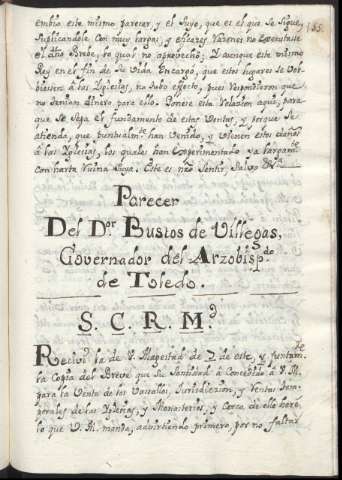 155.
embió este mismo parecer, y el suyo, que es el que se sigue,
suplicandole con muy largas, y eficazes razones no executasse
el dho Brebe, lo qual no aprovechó; Y aunque este mismo
Rey en el fin de su vida encargó, que estos lugares se vol-
biessen à las Yglesias, no tubo efecto, pues respondieron que
no tenian dinero para ello. Ponese esta relazion aqui, para
que se sepa el fundamento de estas ventas, y porque se
atienda, que puntualmte han venido, y vienen estos daños
à las Yglesias, los quales han experimentado ya largamte
con harta ruina suya. Este es nro sentir, salvo &ra
Parecer
Del Dor Bustos de Villegas,
Governador del Arzobispdo
de Toledo.
S. C. R. Md
Recivi la de V. Magestad de 2 de este, y juntamte
la copia del Breve que Su Santidad à concedido à V. M.
para la venta de los vassallos, Jurisdizion, y rentas tem-
porales de las Yglesias, y Monasterios, y cerca de ello haré,
lo que V. M. manda, advirtiendo primero, por no faltar